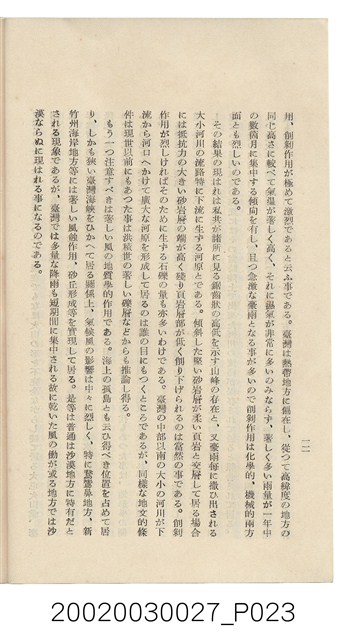 一二
用、削剝作用が極めて激烈であると云ふ事である。臺灣は熱帶地方に偏在し、從つて高緯度の地方の
同じ高さに較べて氣溫が著しく高く、それに濕氣が非常に多いのみならず、著しく多い雨量が一年中
の數箇月に集中する傾向を有し、且つ急激な豪雨となる事が多いので削剝作用は化學的、機械的兩方
面とも烈しいのである。
その結果の現はれは私共が諸所に見る鋸齒狀の高低を示す山峰の存在と、又豪雨每に激び出される
大小河川の流路特に下流に生ずる河原とである。傾斜した堅い砂岩層が柔い頁岩と交層して居る場合
には抵抗力の大きい砂岩層の端が高く殘り頁岩層部が低く削り下げられるのは當然の事である。削剝
作用が烈しければそのために生ずる石礫の量も亦多いわけである。臺灣の中部以南の大小の河川が下
流から河口へかけて廣大な河原を形成して居るのは誰の目にもつくところであるが、同樣な地文的條
件は現世以前にもあつた事は洪積世の著しい礫層などからも推論し得る。
もう一つ注意すべきは著しい風の地質學的作用である。海上の孤島とも云ひ得べき位置を占めて居
り、しかも狹い臺灣海峽をひかへて居る關係上、氣候風の影響は中々に烈しく、特に鵞鑾鼻地方、新
竹州海岸地方等には著しい風蝕作用、砂丘形成等を實現して居る。是等は普通は沙漠地方に特有だと
される現象であるが、臺灣では多量な降雨も短期間に集中される故に乾いた風の働が或る地方では沙
漠ならぬに現はれる事になるのである。
20020030027_P023